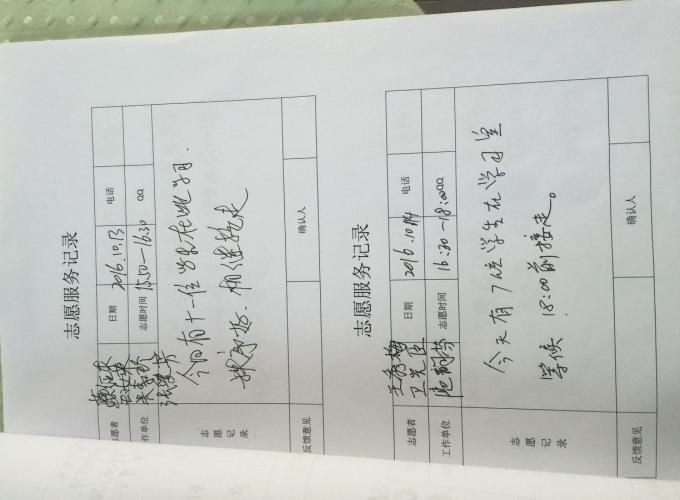 志愿服务记录
志愿者
日期 2016.10.13 电话
工作单位
志愿时间 15:50—16:30 QQ
志愿记录
今日有十一位学生在此学习.
秩序好.相继接走
反馈意见 确认人
志愿服务记录
志愿者
日期 2016.10.14 电话
工作单位
志愿时间 16:30—18:00 QQ
志愿记录
今天有7位学生在学习室
等候 18:00前接走。
反馈意见 确认人